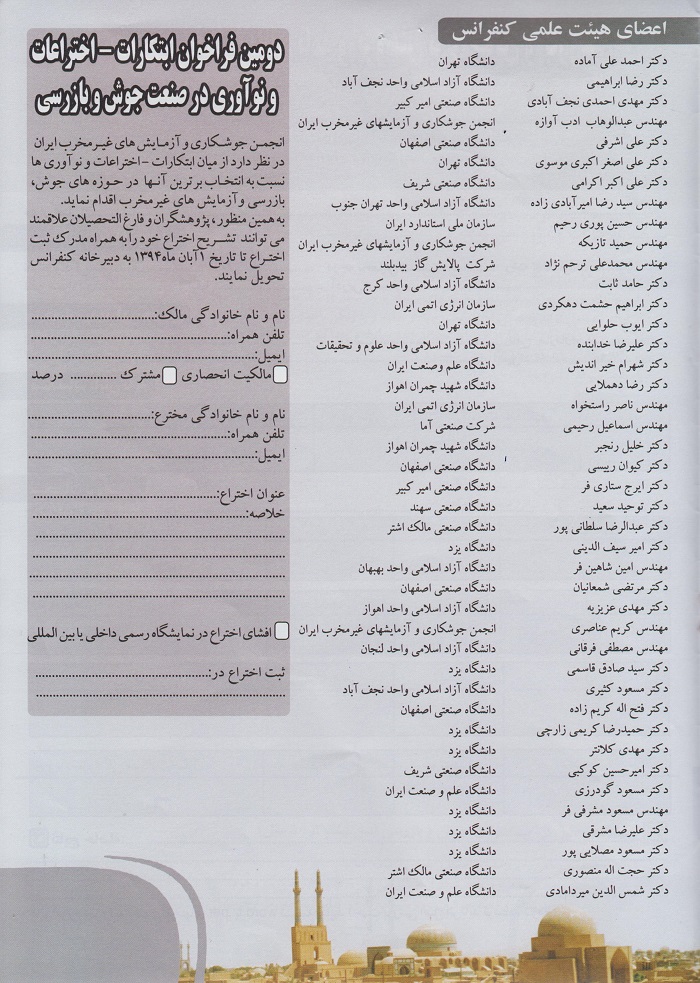 اعضای هیئت علمی کنفرانس
دکتر احمد علی آماده دانشگاه تهران
دکتر رضا ابراهیمی دانشگاه آزاد اسلامی واحد نجف آباد
دکتر مهدی احمدی نجف آبادی دانشگاه صنعتی امیر کبیر
مهندس عبدالوهاب ادب آوازه انجمن جوشکاری و آزمایشهای غیرمخرب ایران
دکتر علی اشرفی دانشگاه صنعتی اصفهان
دکتر علی اصغر اکبری موسوی دانشگاه تهران
دکتر علی اکبر اکرامی دانشگاه صنعتی شریف
مهندس سید رضا امیرآبادی زاده دانشگاه آزاد اسلامی واحد تهران جنوب
مهندس حسین پوری رحیم سازمان ملی استاندارد ایران
مهندس حمید تازیکه انجمن جوشکاری و آزمایشهای غیرمخرب ایران
مهندس محمدعلی ترحم نژاد شرکت پالایش گاز بیدبلند
دکتر حامد ثابت دانشگاه آزاد اسلامی واحد کرج
دکتر ابراهیم حشمت دهکردی سازمان انرژی اتمی ایران
دکتر ایوب حلوایی دانشگاه تهران
دکتر علیرضا خدابنده دانشگاه آزاد اسلامی واحد علوم و تحقیقات
دکتر شهرام خیر اندیش دانشگاه علم وصنعت ایران
دکتر رضا دهملایی دانشگاه شهید چمران اهواز
مهندس ناصر راستخواه سازمان انرژی اتمی ایران
مهندس اسماعیل رحیمی شرکت صنعتی آما
دکتر خلیل رنجبر دانشگاه شهید چمران اهواز
دکتر کیوان رییسی دانشگاه صنعتی اصفهان
دکتر ایرج ستاری فر دانشگاه صنعتی امیر کبیر
دکتر توحید سعید دانشگاه صنعتی سهند
دکتر عبدالرضا سلطانی پور دانشگاه صنعتی مالک اشتر
دکتر امیر سیف الدینی دانشگاه یزد
مهندس امین شاهین فر دانشگاه آزاد اسلامی واحد بهبهان
دکتر مرتضی شمعانیان دانشگاه صنعتی اصفهان
دکتر مهدی عزیزیه دانشگاه آزاد اسلامی واحد اهواز
مهندس کریم عناصری انجمن جوشکاری و آزمایشهای غیرمخرب ایران
مهندس مصطفی فرقانی دانشگاه آزاد اسلامی واحد لنجان
دکتر سید صادق قاسمی دانشگاه یزد
دکتر مسعود کثیری دانشگاه آزاد اسلامی واحد نجف آباد
دکتر فتح اله کریم زاده دانشگاه صنعتی اصفهان
دکتر حمیدرضا کریمی زارچی دانشگاه یزد
دکتر مهدی کلانتر دانشگاه یزد
دکتر امیرحسین کوکبی دانشگاه صنعتی شریف
دکتر مسعود گودرزی دانشگاه علم و صنعت ایران
مهندس مسعود مشرفی فر دانشگاه یزد
دکتر علیرضا مشرقی دانشگاه یزد
دکتر مسعود مصلایی پور دانشگاه یزد
دکتر حجت اله منصوری دانشگاه صنعتی مالک اشتر
دکتر شمس الدین میردامادی دانشگاه علم و صنعت ایران
دومین فراخوان ابتکارات – اختراعات
و نوآوری در صنعت جوش و بازرسی
انجمن جوشکاری و آزمایش های غیرمخرب ایران
در نظر دارد از میان ابتکارات -اختراعات و نوآوری ها
نسبت به انتخاب برترین آنها در حوزه های جوش،
بازرسی و آزمایش های غیرمخرب اقدام نماید.
به همین منظور، پژوهشگران و فارغ التحصیلان علاقمند
می توانند تشریح اختراع خود را به همراه مدرک ثبت
اختراع تا تاریخ ۱ آبان ماه ۱۳۹۴ به دبیرخانه کنفرانس
تحویل نمایند.
نام و نام خانوادگی مالک:
تلفن همراه:
ایمیل:
مالکیت انحصاری مشترک ............. درصد
نام و نام خانوادگی مخترع:
تلفن همراه:
ایمیل:
عنوان اختراع:
خلاصه:
افشای اختراع در نمایشگاه رسمی داخلی یا بین المللی
ثبت اختراع در: